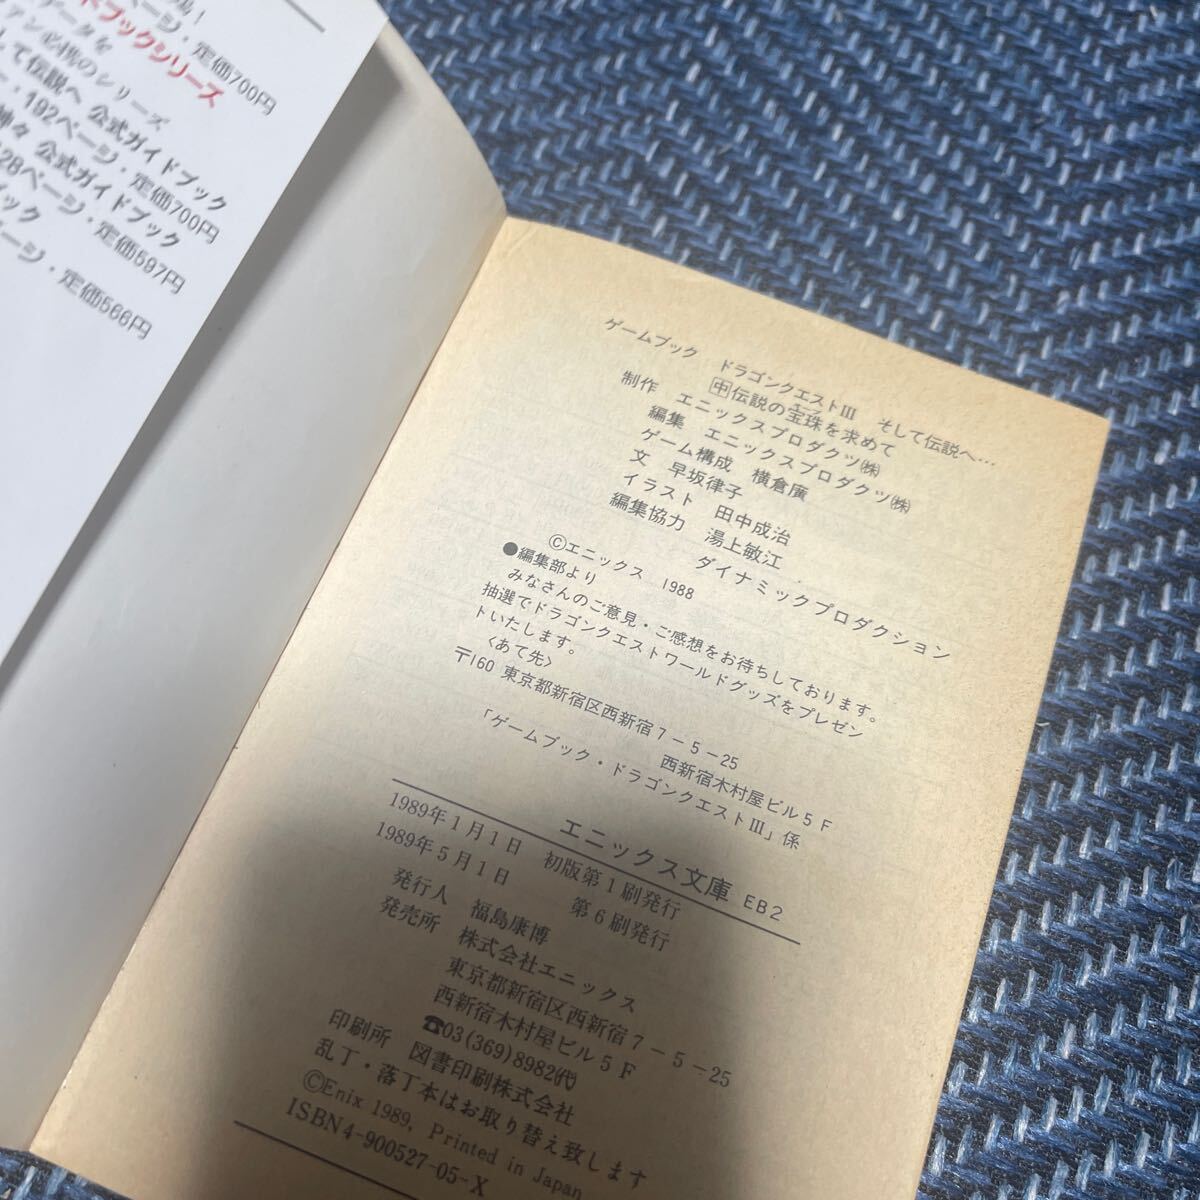 ル！
ページ・定価700円
ドブックシリーズ
データを
ァン必携のシリーズ
して伝説へ 公式ガイドブック
・192ページ・定価700円
神々 公式ガイドブック
28ページ・定価597円
ブック
ページ・定価566円
ゲームブック ドラゴンクエストIII そして伝説へ…
中伝説の宝珠を求めて
制作 エニックスプロダクツ㈱
編集 エニックスプロダクツ㈱
ゲーム構成 横倉廣
文 早坂律子
イラスト 田中成治
編集協力 湯上敏江
ダイナミックプロダクション
Ⓒエニックス 1988
●編集部より
みなさんのご意見・ご感想をお待ちしております。
抽選でドラゴンクエストワールドグッズをプレゼン
トいたします。
〈あて先〉
〒160 東京都新宿区西新宿7－5－25
西新宿木村屋ビル5F
「ゲームブック・ドラゴンクエストIII」係
エニックス文庫 EB2
1989年1月1日 初版第1刷発行
1989年5月1日 第6刷発行
発行人 福島康博
発売所 株式会社エニックス
東京都新宿区西新宿7－5－25
西新宿木村屋ビル5F
☎03(369)8982㈹
印刷所 図書印刷株式会社
乱丁・落丁本はお取り替え致します
ⒸEnix 1989, Printed in Japan
ISBN4-900527-05-X